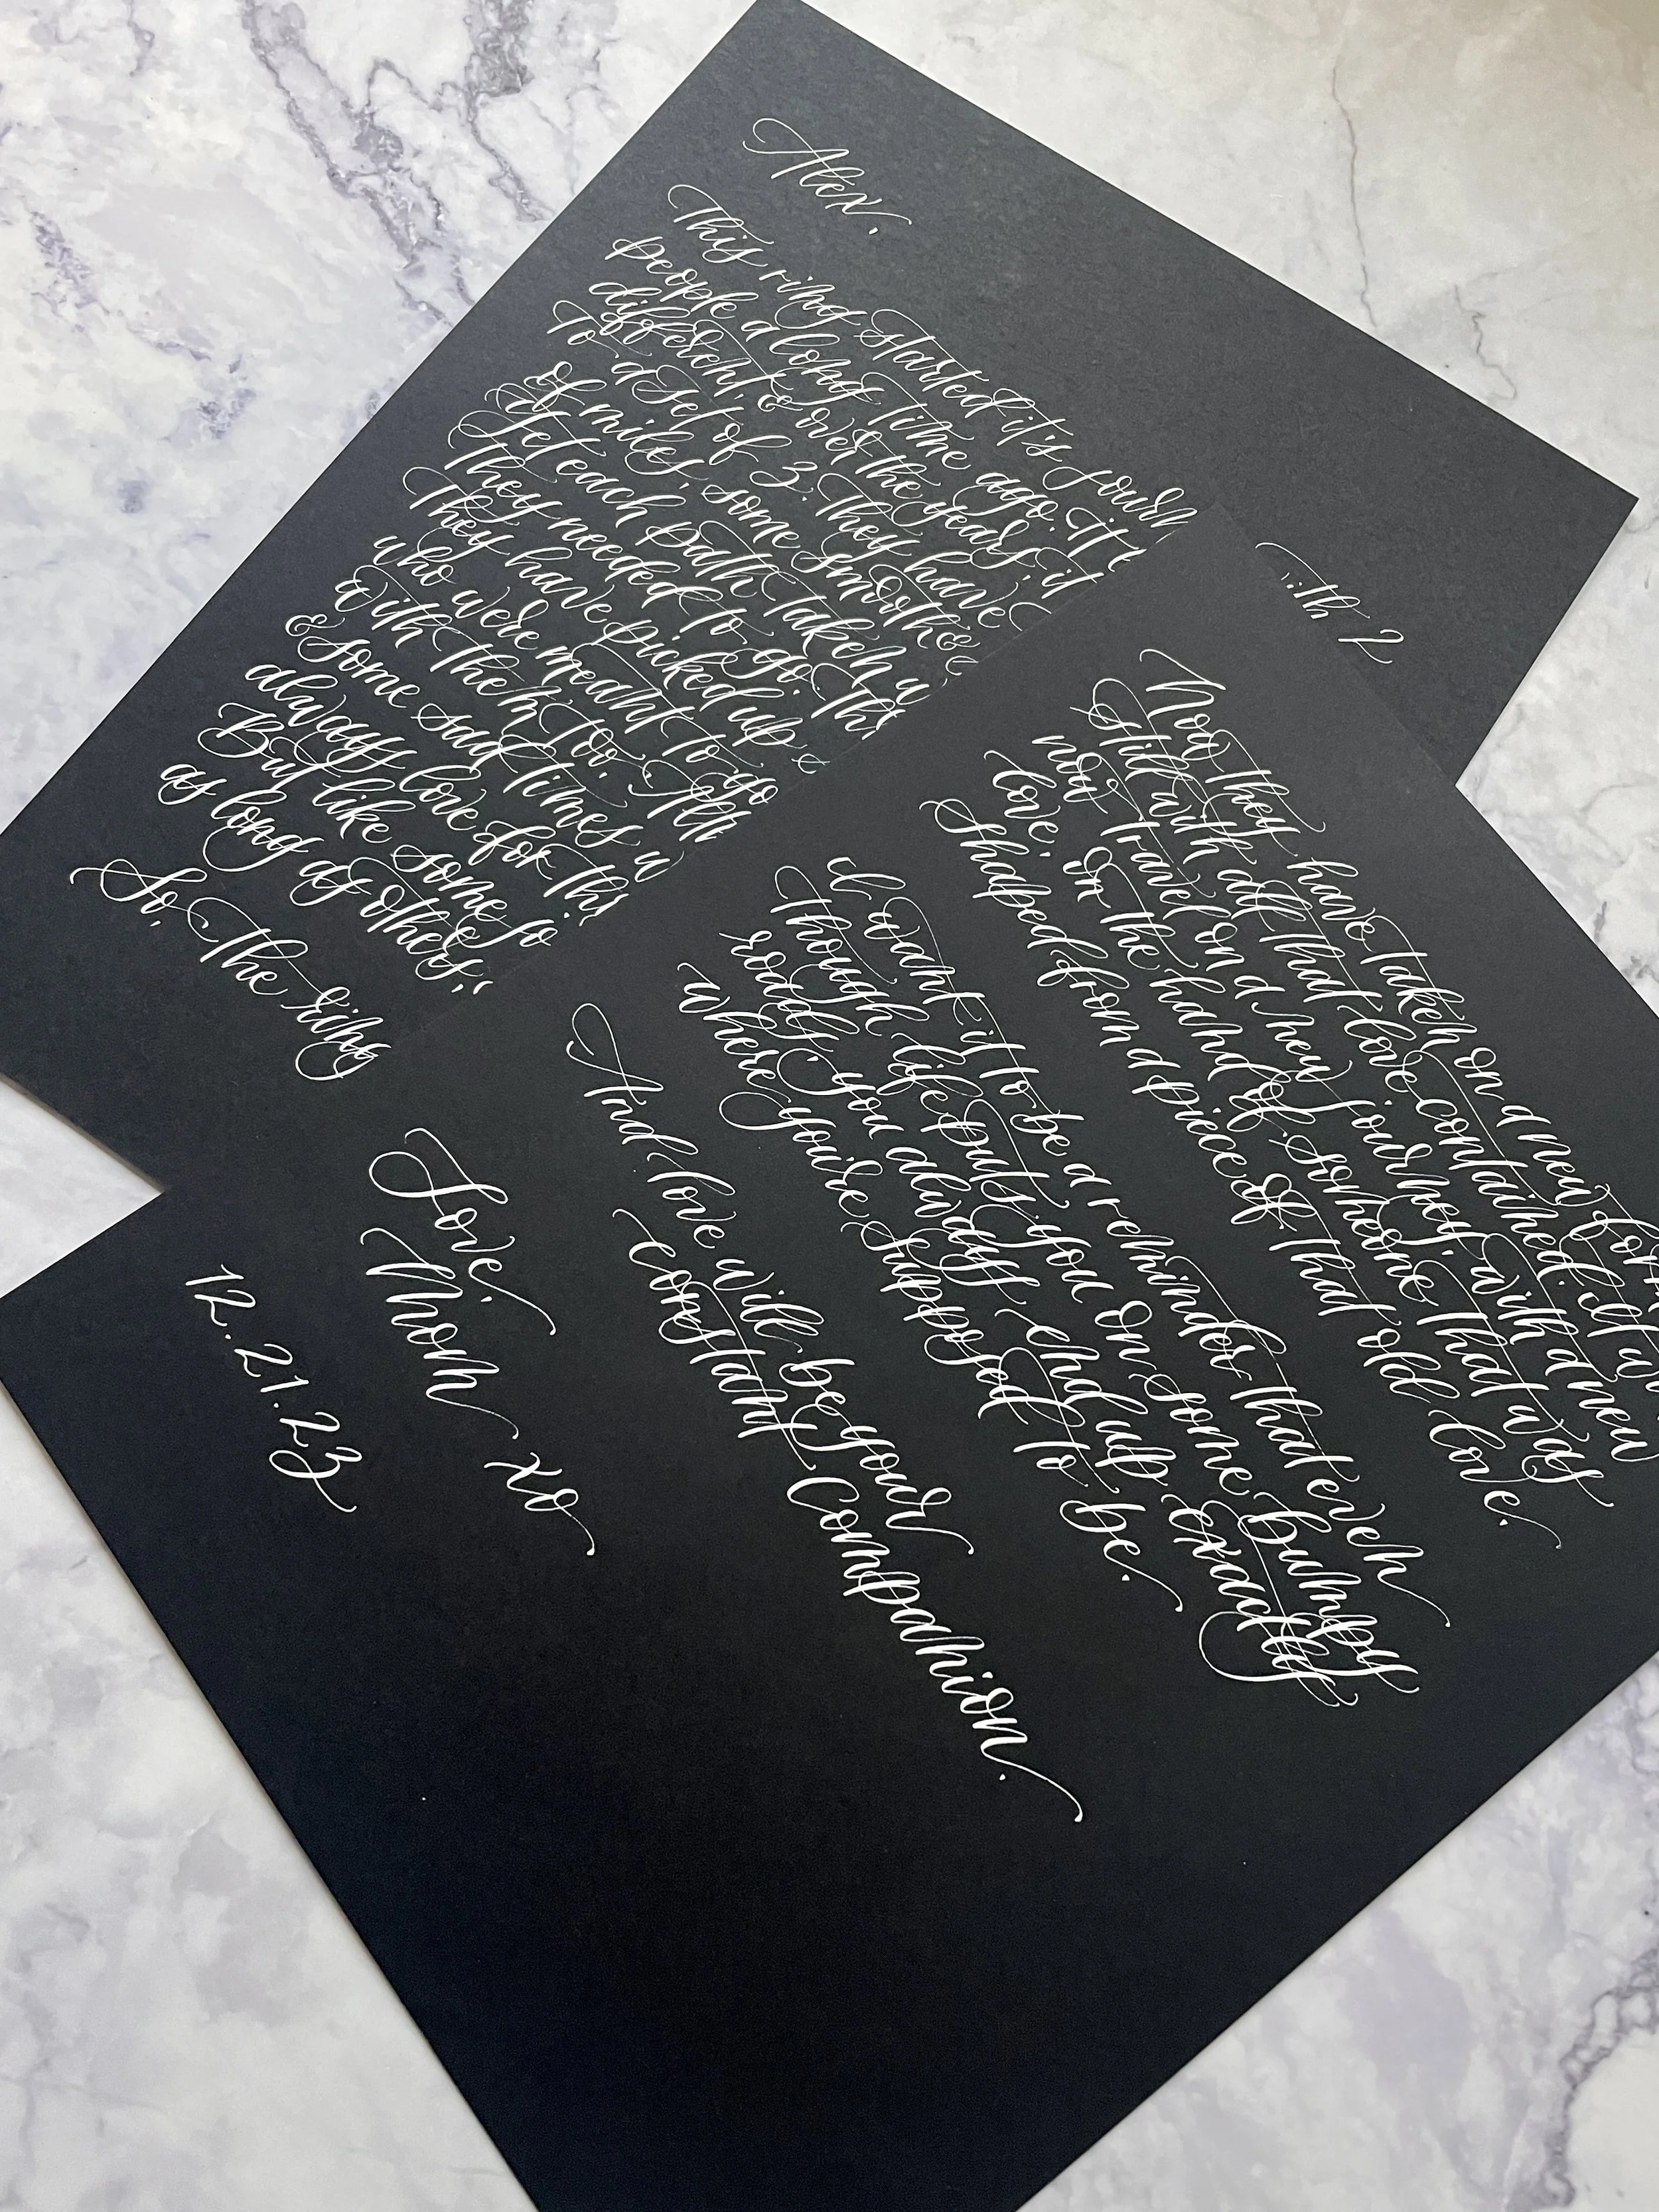 Alex,
This ring started it's journ
people a long time ago. It
different, & over the years, it
To a set of 3. They have
of miles, some smooth &
yet each path taken w
They needed to go. Th
They have picked up
who were meant to go
with them too.
& some sad times
always love for
But like some
as long as others,
So, The ring
with 2
Now they have taken on a new form
still with all that love contained.
now travel on a new journey, with a new
love, on the hand of someone that was
shaped from a piece of that old love.
I want it to be a reminder that even
Though life puts you on some bumpy
roads, you always end up exactly
where you're supposed to be.
And love will be your
constant Companion.
Love,
Mom xo
12.21.23